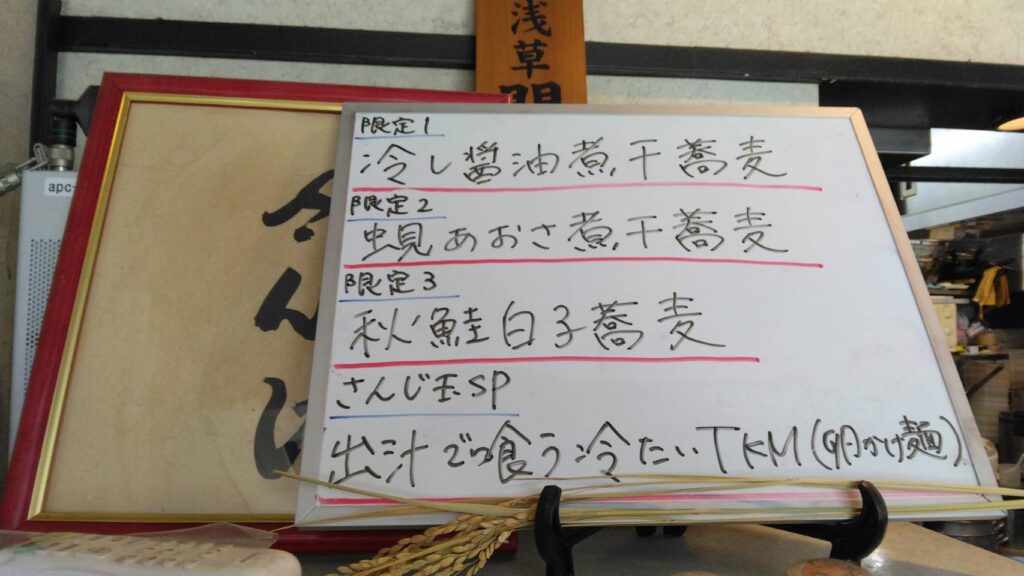 浅草
apc
さんじ
限定1
冷し醤油煮干蕎麦
限定2
蜆あおさ煮干蕎麦
限定3
秋鮭白子蕎麦
さんじ玉SP
出汁で喰う冷たいTKM(卵かけ麺)